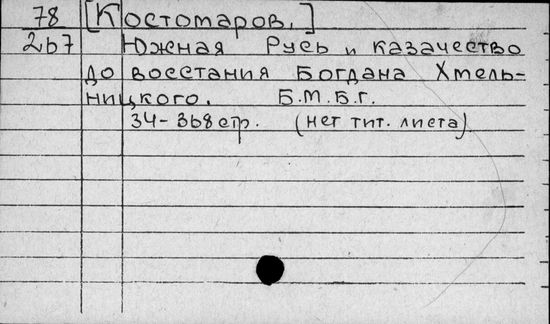 78 [Костомаров.]
267 Южная Русь и казачество
до восстания Богдана Хмель-
ницкого. Б.М.Б.г.
34-368 стр. (нет тит. листа)